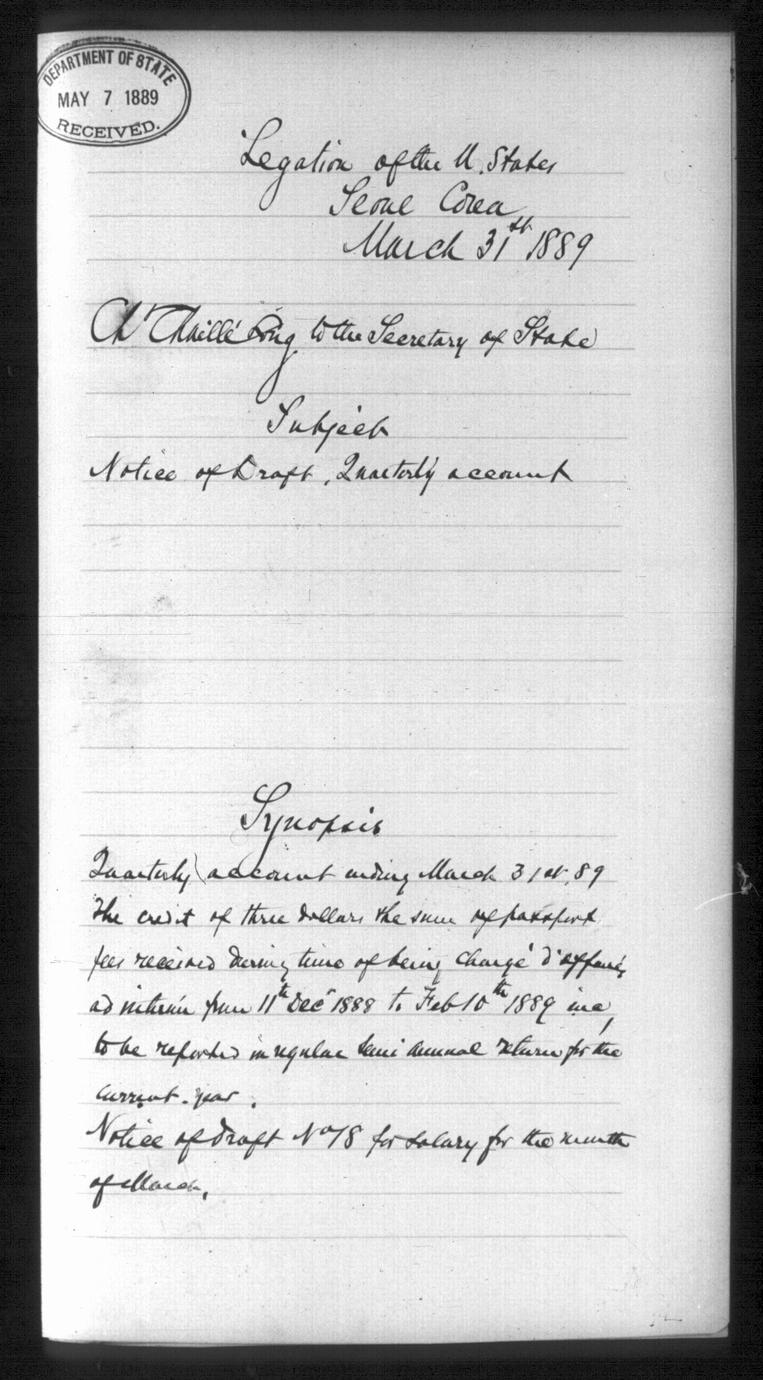 DEPARTMENT OF STATE
MAY 7 1889
RECEIVED.
Legation of the U. States
Seoul Corea
March 31st 1889
Ch. Chaillé Long to the Secretary of State
Subject
Notice of Draft, Quarterly account
Synopsis
Quarterly account ending March 31st, 89
The credit of three dollars the sum of passport
fees received during time of being chargé d'affaires
ad interim from 11th Dec 1888 to Feb 10th 1889 inc,
to be reported in regular semi annual return for the
current year.
Notice of Draft No 18 for salary for the month
of March,